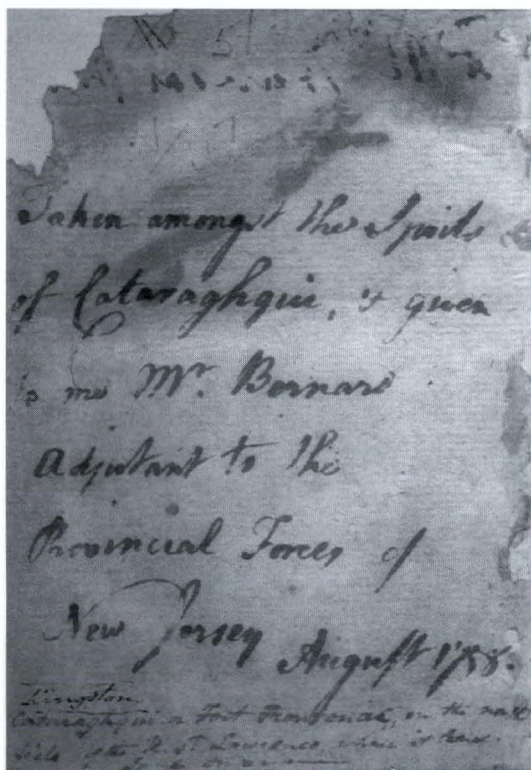 Taken amongst the Spoils
of Cataraghqui, & given
to me Mr. Bernard
Adjutant to the
Provincial Forces of
New Jersey August 1758.
Kingston
Cataraghqui or Fort Frontenac, on the north
side of the R. St Lawrence, where it